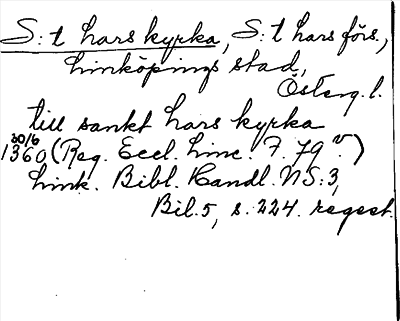 S:t Lars kyrka, S:t Lars förs.,
Linköpings stad,
Österg. l.
till sankt Lars kyrka
30/6
1360 (Reg. Eccl. Linc. F. 79 v.)
Link. Bibl. Handl. NS:3,
Bil. 5, s. 224. regest.